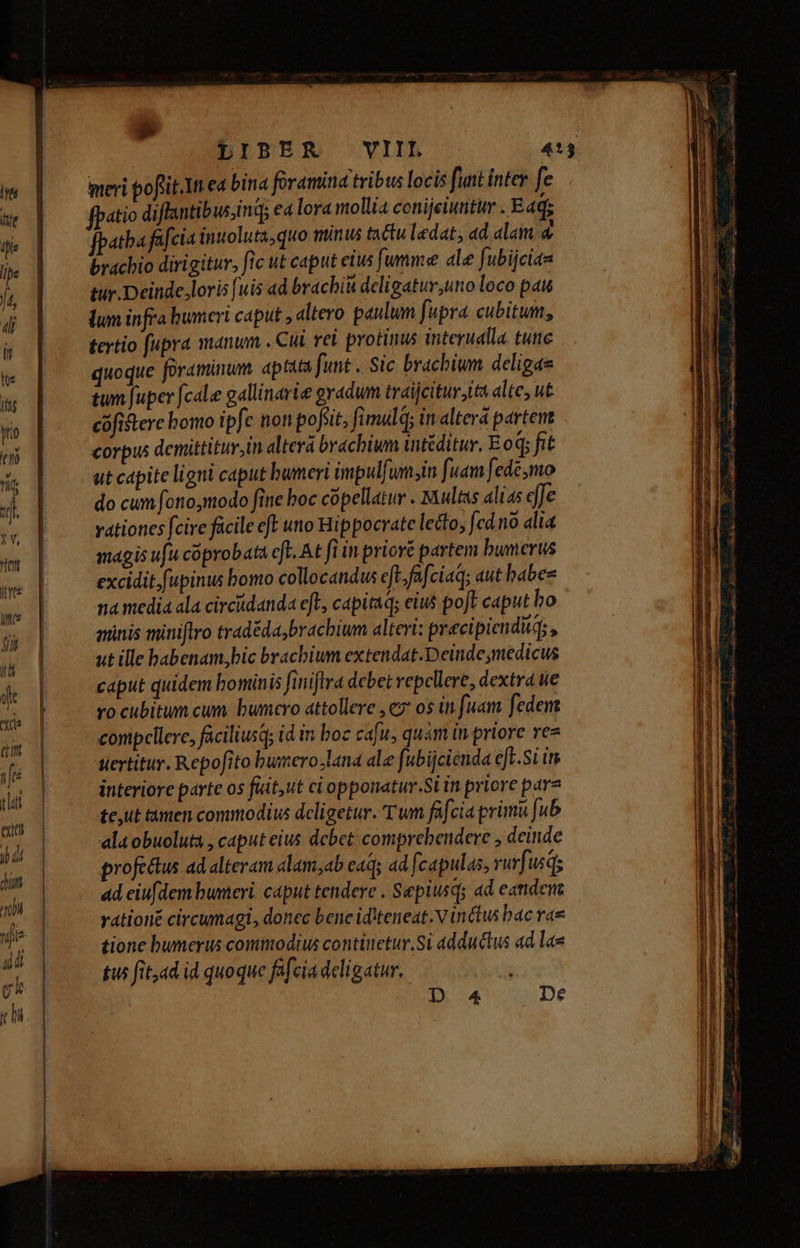 LIBER VIII. 423
meri poſsit. In ea bina foramina tribus locis ſunt inter ſe
ſpatio diſtantibus, inq; ea lora mollia conijciuntur. Eaq;
ſpatha faſcia inuoluta, quo minus tactu lædat, ad alam à
brachio dirigitur, ſic ut caput eius ſummæ alæ ſubijcia=
tur. Deinde, loris ſuis ad brachiũ deligatur, uno loco pau
lum infra humeri caput, altero paulum ſupra cubitum,
tertio ſupra manum. Cui rei protinus interualla tunc
quoque foraminum aptata ſunt. Sic brachium deliga=
tum ſuper ſcalæ gallinariæ gradum traijcitur, ita alte, ut
cõſiſtere homo ipſe non poſsit, ſimulq; in alterã partem
corpus demittitur, in alterã brachium intẽditur. Eoq; fit
ut capite ligni caput humeri impulſum, in ſuam ſedẽ, mo
do cum ſono, modo ſine hoc cõpellatur. Multas alias eſſe
rationes ſcire facile eſt uno Hippocrate lecto, ſed nõ alia
magis uſu cõprobata eſt. At ſi in priorẽ partem humerus
excidit, ſupinus homo collocandus eſt, faſciaq; aut habe=
na media ala circũdanda eſt, capitaq; eius poſt caput ho
minis miniſtro tradẽda, brachium alteri: præcipiendũq;,
ut ille habenam, hic brachium extendat. Deinde, medicus
caput quidem hominis ſiniſtra debet repellere, dextra ue
ro cubitum cum humero attollere, & os in ſuam ſedem
compellere, faciliusq; id in hoc caſu, quàm in priore re=
uertitur. Repoſito humero, lana alæ ſubijcienda eſt. Si in
interiore parte os fuit, ut ei opponatur. Si in priore par=
te, ut tamen commodius deligetur. Tum faſcia primũ ſub
ala obuoluta, caput eius debet comprehendere, deinde
profectus ad alteram alam, ab eaq; ad ſcapulas, rurſusq;
ad eiuſdem humeri caput tendere. Sæpiusq; ad eandem
rationẽ circumagi, donec bene id teneat. Vinctus hac ra=
tione humerus commodius continetur. Si adductus ad la=
tus ſit, ad id quoque faſcia deligatur.
D 4 De